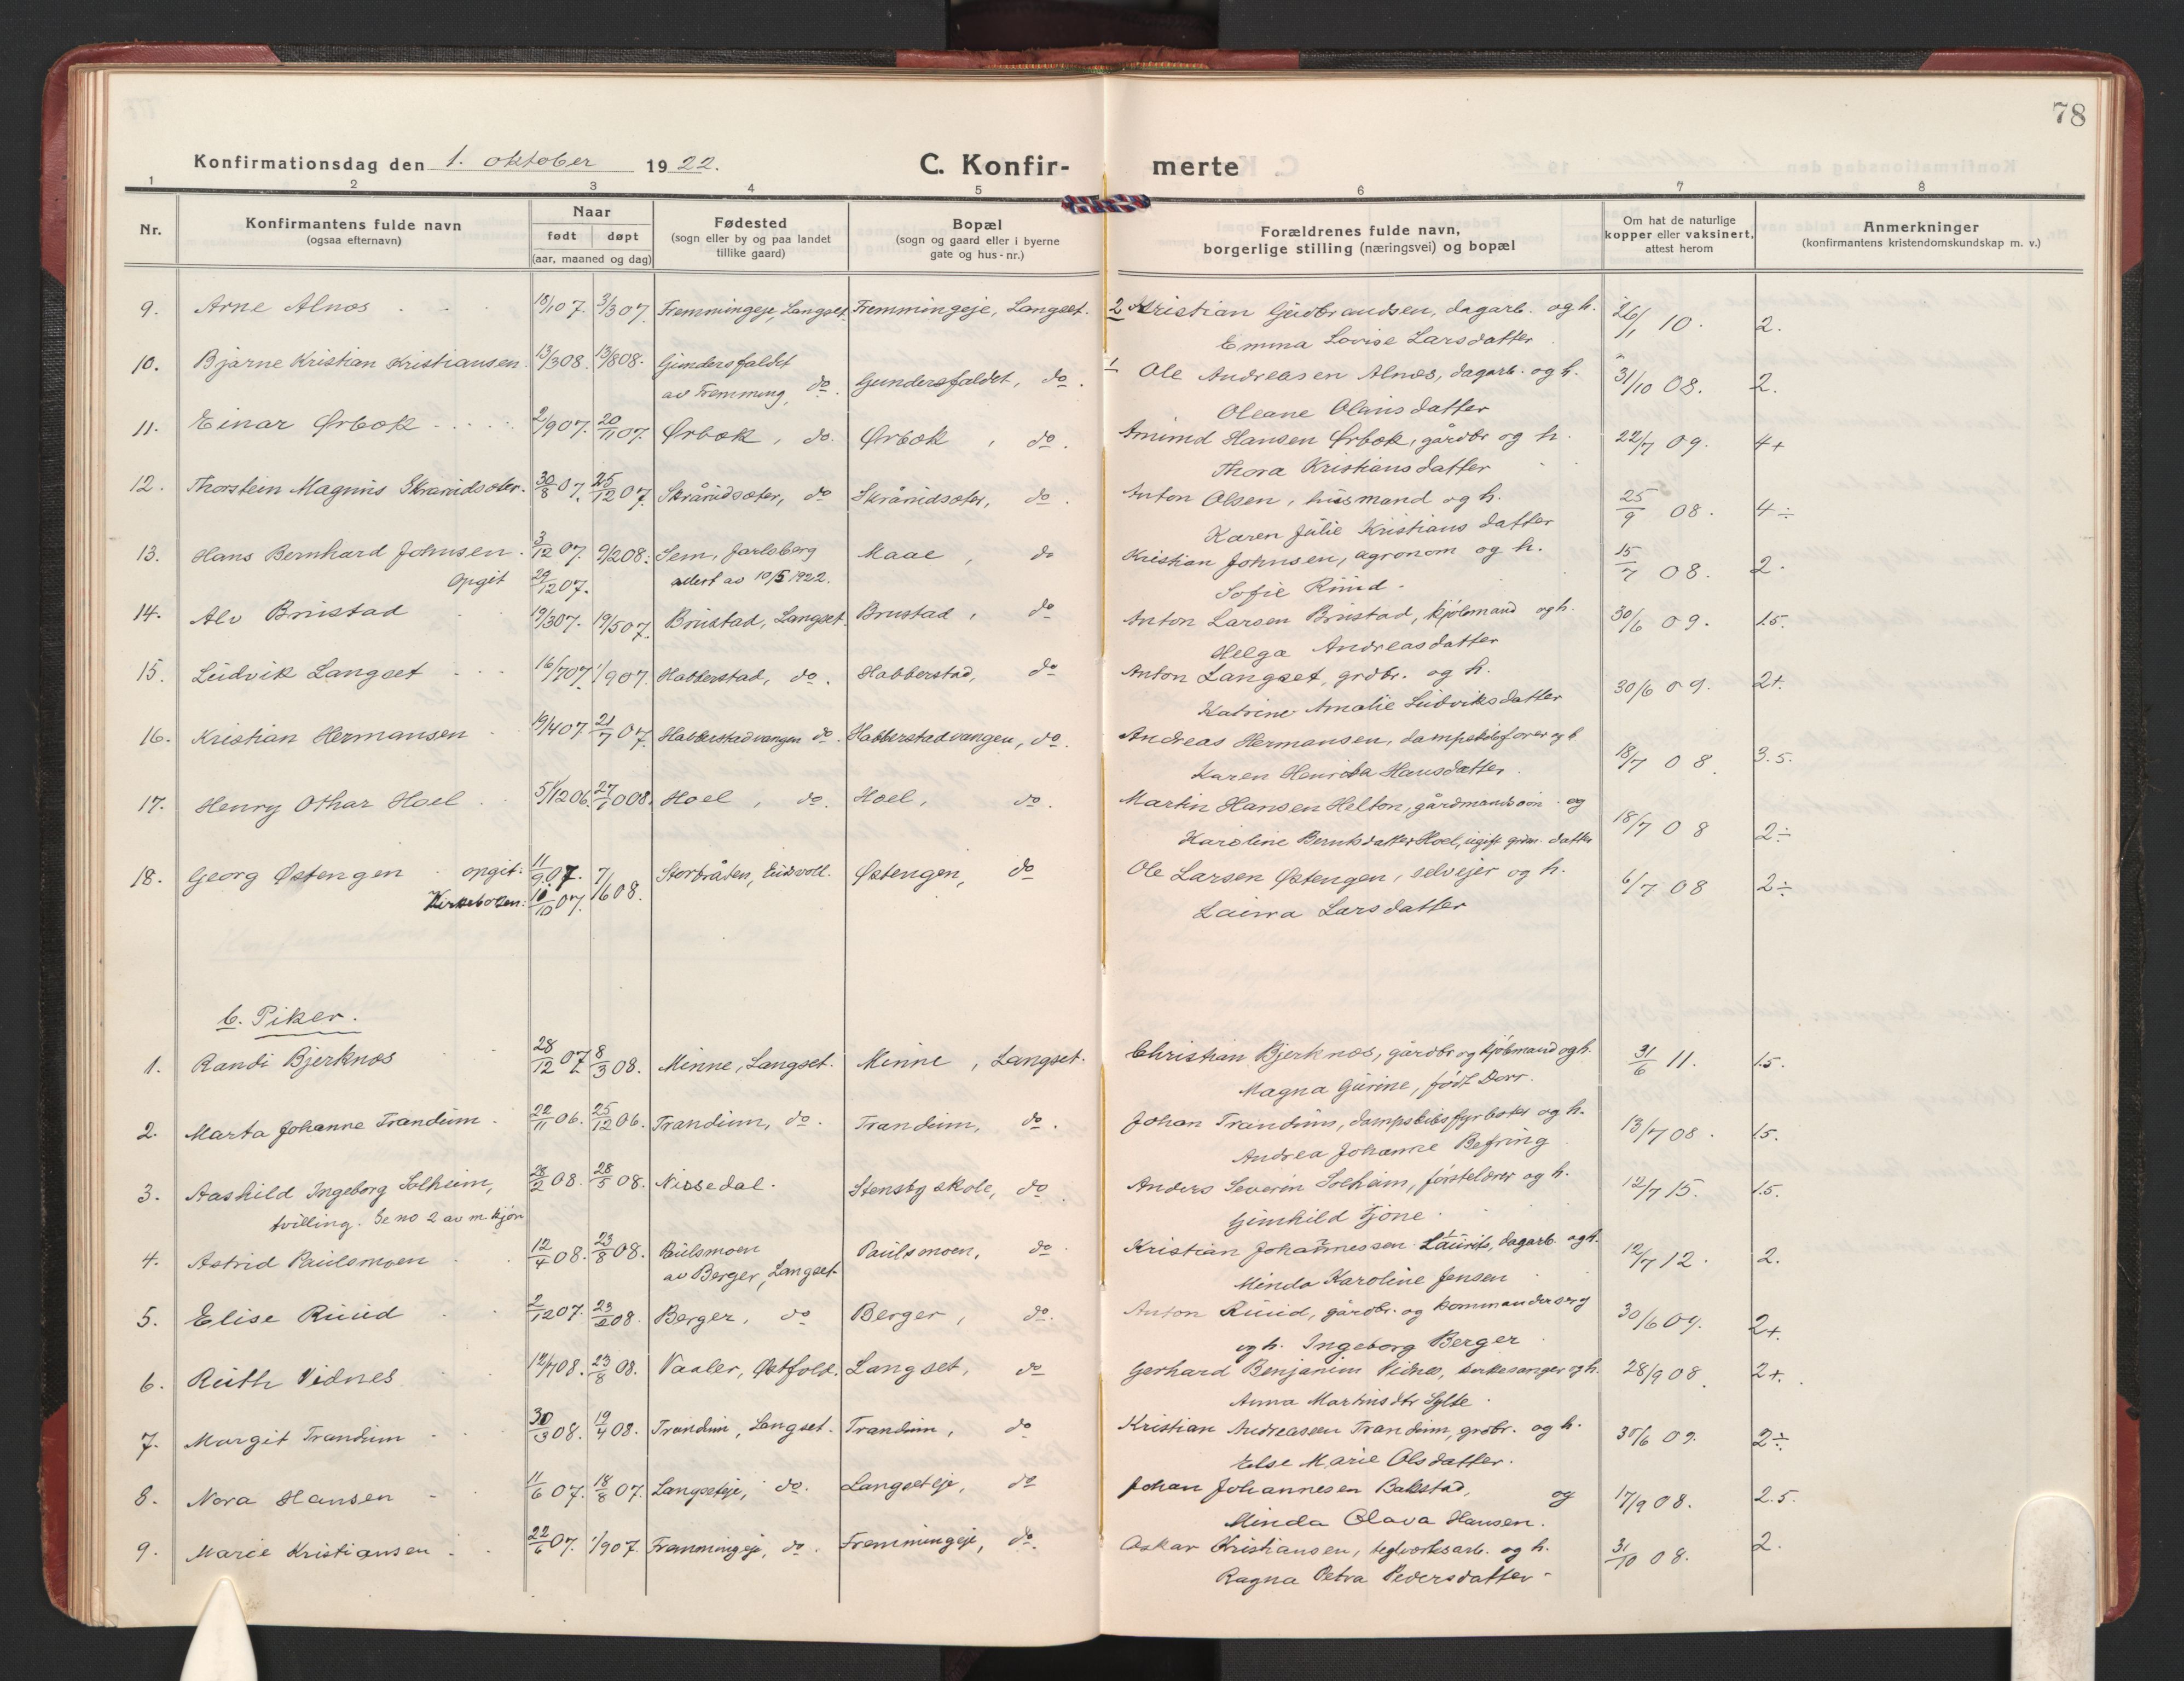 78
Konfirmationsdag den 1. oktober 1922.
C. Konfir-merte
1 2 3 4 5 6 7 8
Nr.
Konfirmantens fulde navn
(ogsaa efternavn)
Naar
født døpt
(aar, maaned og dag)
Fødested
(sogn eller by og paa landet
tillike gaard)
Bopæl
(sogn og gaard eller i byerne
gate og hus-nr.)
Forældrenes fulde navn,
borgerlige stilling (næringsvei) og bopæl
Om hat de naturlige
kopper eller vaksinert,
attest herom
Anmerkninger
(konfirmantens kristendomskundskap m. v.)
9. Arne Alnæs 18/1 07. 3/3 07. Fremmingeje, Langset. Fremmingeje, Langset. 2 Kristian Gudbrandsen, dagarb. og h. 26/1 10. 2.
Emma Lovise Larsdatter
10. Bjarne Kristian Kristiansen. 13/3 08. 13/8 08. Gundersfaldet Gundersfaldet, do. 1 Ole Andreasen Alnæs, dagarb. og h. 31/10 08. 2.
av Fremming, do. Oleane Olausdatter
11. Einar Ørbæk 2/9 07. 20/11 07. Ørbæk, do. Ørbæk, do. Amund Hansen Ørbæk, gårdbr og h. 22/7 09. 4+
Thora Kristiansdatter
12. Thorstein Magnus Skrårudsæter. 30/8 07. 25/12 07. Skrårudsæter, do Skrårudsæter, do. Anton Olsen, husmand og h. 25/9 08. 4÷
Karen Julie Kristiansdatter
13. Hans Bernhard Johnsen. 3/12 07. 9/2 08. Sem, Jarlsberg Maae, do Kristian Johnsen, agronom og h. 15/7 08. 2.
opgit 29/12 07. attest av 10/5 1922. Sofie Ruud.
14. Alv Brustad 19/3 07. 19/5 07. Brustad, Langset. Brustad, do Anton Larsen Brustad, kjøbmand og h. 30/6 09. 1.5.
Helga Andreasdatter
15. Ludvik Langset 16/7 07. 1/9 07. Habberstad, do. Habberstad, do Anton Langset, grdbr. og h. 30/6 09. 2+.
Katrine Amalie Ludviksdatter
16. Kristian Hermansen 19/4 07 21/7 07. Habberstadvangen do. Habberstadvangen, do. Andreas Hermansen, dampskibsfører og h 18/7 08. 3.5.
Karen Henrikka Hansdatter.
17. Henry Othar Hoel 5/12 06. 27/10 08. Hoel, do. Hoel, do. Martin Hansen Helton, gårdmandssøn og 18/7 08 2÷
Karoline Berntsdatter Hoel, ugift grdm. datter
18. Georg Østengen opgit: 11/9 07. 7/16 08. Storbråten, Eidsvoll. Østengen, do Ole Larsen Østengen, selvejer og h. 6/7 08 2÷
Kirkeboken: 10/10 07. Laura Larsdatter
b. Piker.
1. Randi Bjerknæs 28/12 07 8/3 08. Minne, Langset. Minne, Langset. Christian Bjerknæs, gårdbr og kjøbmand og h. 31/6 11. 1.5.
Magna Gurine, født Dorr.
2. Marta Johanne Trandum. 22/11 06. 25/12 06. Trandum, do. Trandum, do. Johan Trandum, dampskibsfyrbøter og h. 13/7 08. 1.5.
Andrea Johanne Befring
3. Aashild Ingeborg Solheim, 28/2 08. 28/5 08. Nissedal. Stensby skole, do. Anders Severin Solheim, førstelærer og h. 12/7 15. 1.5.
tvilling. Se no 2 av m. kjøn Gunhild Tjøne.
4. Astrid Paulsmoen 12/4 08. 23/8 08. Paulsmoen Paulsmoen, do. Kristian Johannessen Laurits, dagarb. og h. 12/7 12. 2.
av Berger, Langset. Minda Karoline Jensen
5. Elise Ruud 2/12 07. 23/2 08. Berger, do Berger, do. Anton Ruud, gårdbr. og kommandersorg 30/6 09. 2+.
og h. Ingeborg Berger
6. Ruth Vidnes 12/7 08. 23/8 08. Vaaler, Østfold. Langset, do Gerhard Benjamin Vidnes, kirkesanger og h. 28/9 08. 2+.
Anna Martinsdtr Sylte.
7. Margit Trandum 30/3 08. 19/4 08. Trandum, Langset. Trandum, do Kristian Andreassen Trandum, grdbr. og h. 30/6 09. 2÷
Else Marie Olsdatter.
8. Nora Hansen 11/6 07. 18/8 07. Langseteje, do. Langseteje, do Johan Johannesen Bakstad, og 17/9 08. 2.5.
Minda Olava Hansen.
9. Marie Kristiansen 22/6 07. 1/9 07. Fremmingeje, do. Fremmingeje, do. Oskar Kristiansen, teglverksarb. og h. 31/10 08. 2.
Ragna Petra Pedersdatter